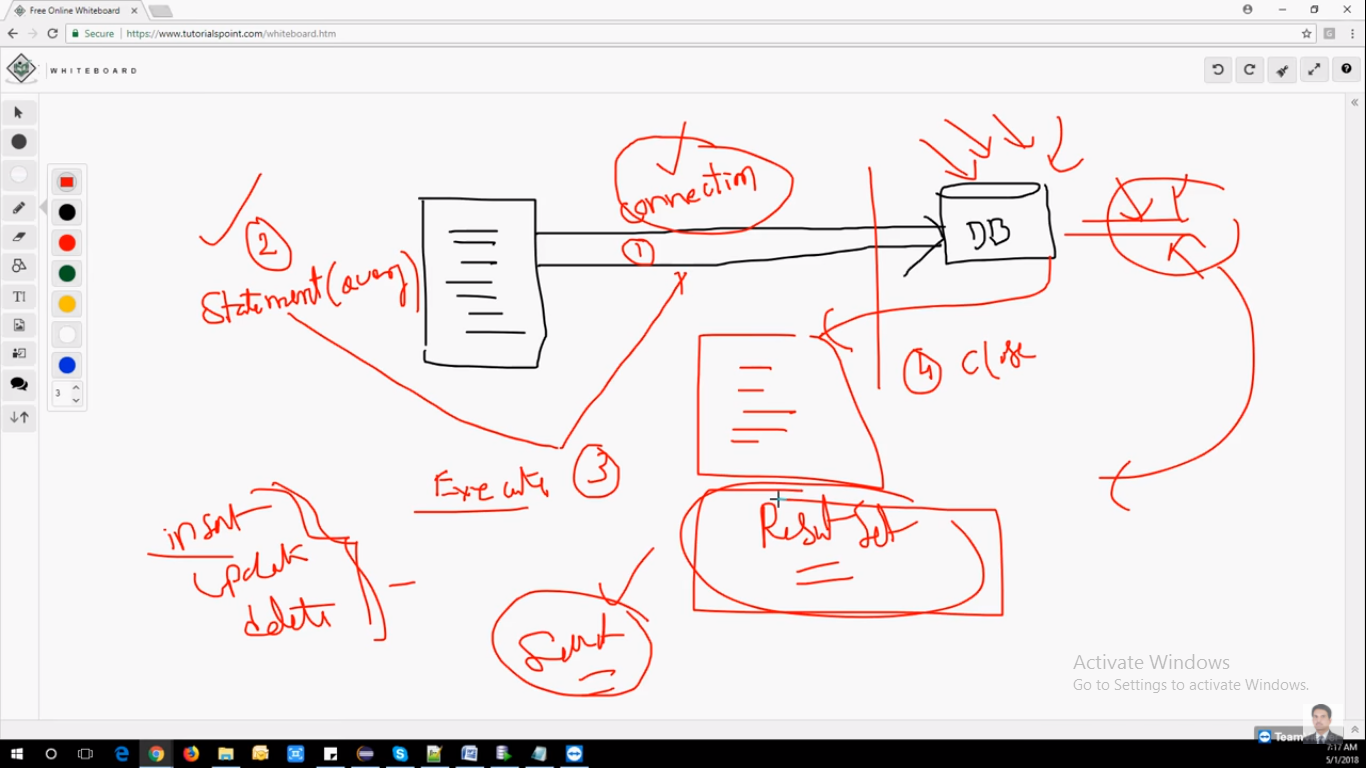 Free Online Whiteboard
Secure
https://www.tutorialspoint.com/whiteboard.htm
WHITEBOARD
TI
3
connection
1
2
DB
Statement(query)
4 Close
Execute 3
insert
update
delete
Result Set
Select
Activate Windows
Go to Settings to activate Windows.
Team
7:17 AM
5/1/2018